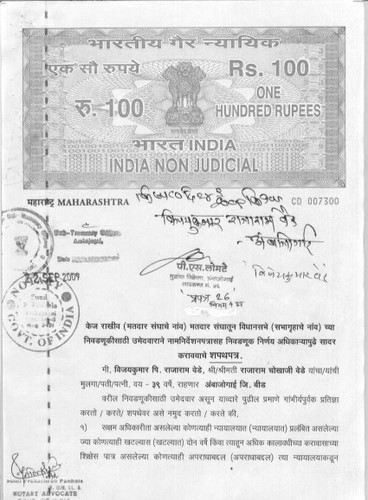 भारतीय गैर न्यायिक
एक सौ रुपये
Rs. 100
रु. 100
ONE
HUNDRED RUPEES
भारत INDIA
INDIA NON JUDICIAL
महाराष्ट्र MAHARASHTRA
CD 007300
Sub-Treasury Officer
Ambajogai
SEP 2009
NOTARY
GOVT. OF INDIA
पी.एस.लोमटे
"प्रपत्र 26"
केज राखीव (मतदार संघाचे नांव) मतदार संघातून विधानसभे (सभागृहाचे नांव) च्या
निवडणूकीसाठी उमेदवाराने नामनिर्देशनपत्रासह निवडणूक निर्णय अधिकाऱ्यापुढे सादर
करावयाचे शपथपत्र.
मी, विजयकुमार पि. राजाराम वेडे, श्री/श्रीमती राजाराम चोखाजी वेडे यांचा/यांची
मुलगा/पती/पत्नी, वय - ३९ वर्षे, राहणार अंबाजोगाई जि. बीड
वरील निवडणूकीसाठी उमेदवार असून याव्दारे पुढील प्रमाणे गांभीर्यपुर्वक प्रतिज्ञा
करतो / करते/ शपथेवर असे नमुद करतो / करते की,
१) सक्षम अधिकारीता असलेल्या कोणत्याही न्यायालयात (न्यायालयात) प्रलंबित असलेल्या
ज्या कोणत्याही खटल्यास (खटल्यात) दोन वर्षे किंवा त्याहून अधिक कालावधीच्या कारावासाच्या
शिक्षेस पात्र असलेल्या कोणत्याही अपराधाबद्दल (अपराधाबद्दल) त्या न्यायालयाकडून
NOTARY ADVOCATE